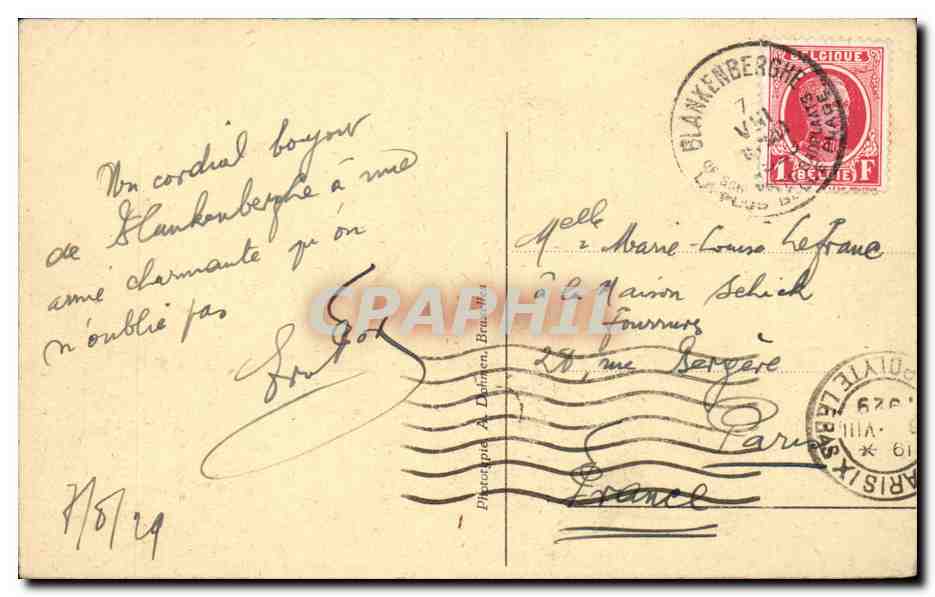 Un cordial bonjour
de Blankenberghe à une
amie charmante qu'on
n'oublie pas
7/8/29
Phototypie A. Dohmen, Bruxelles
BELGIQUE
1 F
BELGIË
BLANKENBERGHE
7
VIII
PLAGE
Melle Marie-Louise Lefranc
à la Maison Schick
Fourrures
28, rue Bergère
Paris
France
PARIS IX
1929
VIII
19 *
CPAPHIL